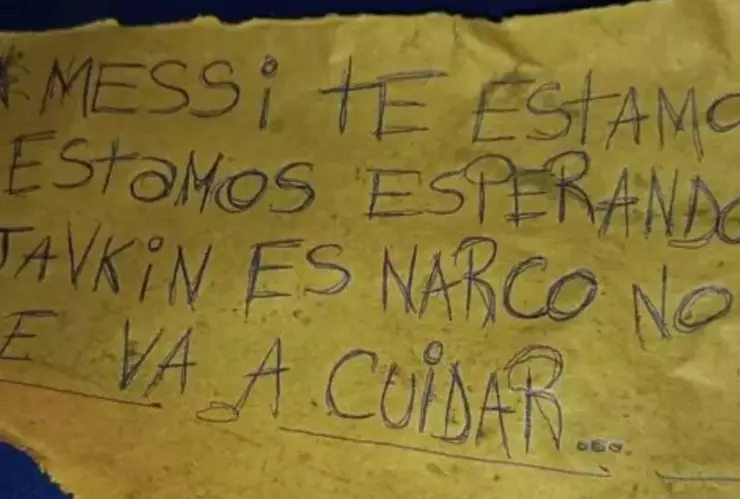 MESSi tE EStAMO
EStaMOS ESPERANDO
JAVKiN ES NARCO NO
E VA A CUiDAR....